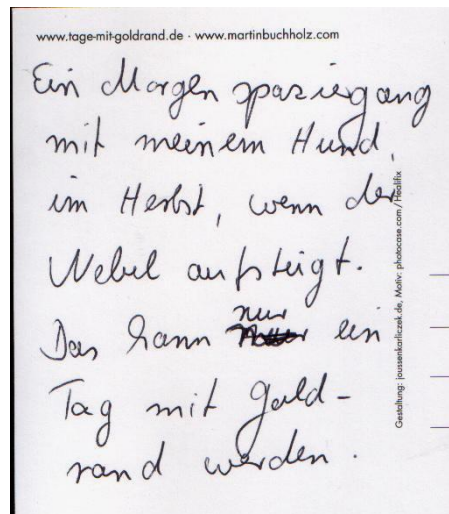 www.tage-mit-goldrand.de · www.martinbuchholz.com
Ein Morgenspaziergang
mit meinem Hund,
im Herbst, wenn der
Nebel aufsteigt.
Das kann nur ein
Tag mit Gold-
rand werden.
Gestaltung: joussenkarliczek.de, Motiv: photocase.com/Healifix